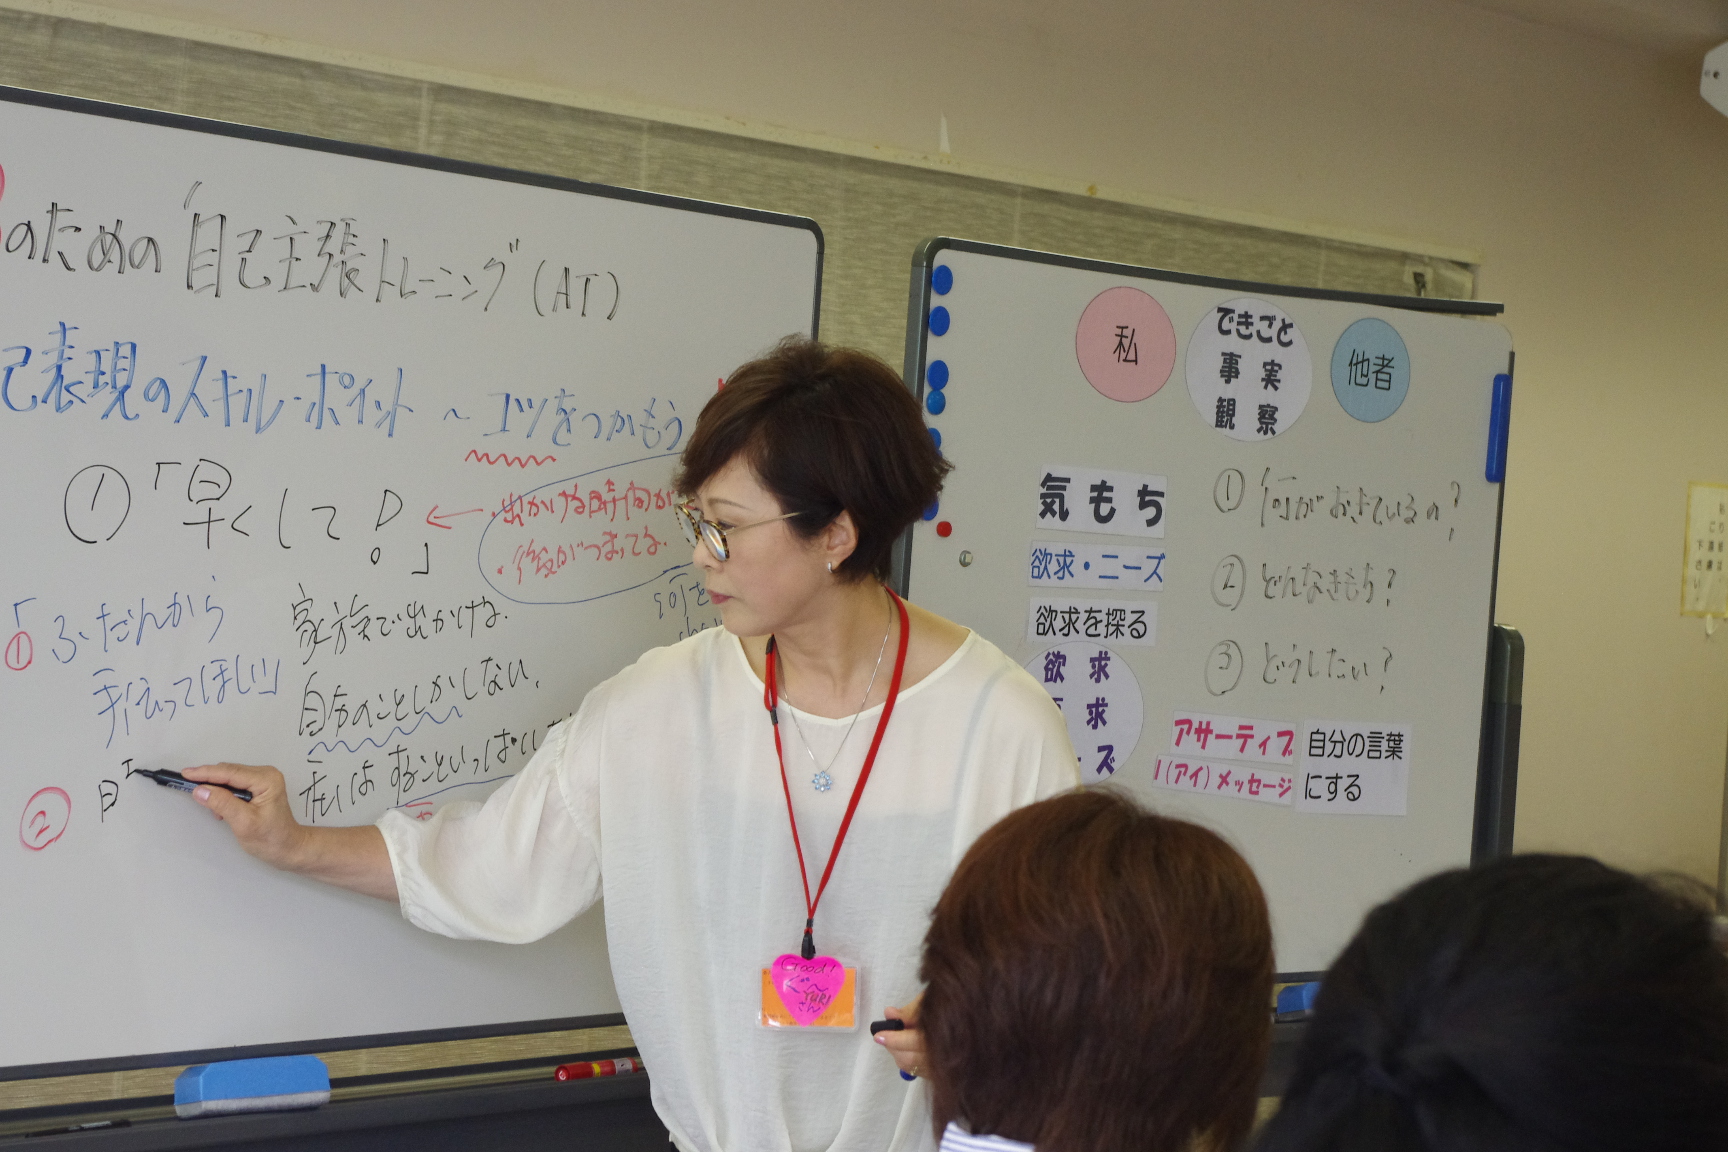 のための「自己主張トレーニング」(AT)
己表現のスキル・ポイント ～コツをつかもう
①「早くして!」
・出かける時間が
・後がつまってる。
「ふだんから
①
手伝ってほしい」
家族で出かける。
自分のことしかしない。
私はすることいっぱい
②
私
できごと
事実
観察
他者
気もち
欲求・ニーズ
欲求を探る
欲求
求
ズ
①何がおきているの?
②どんなきもち?
③どうしたい?
アサーティブ
I(アイ)メッセージ
自分の言葉
にする
Good!
YURI
さん